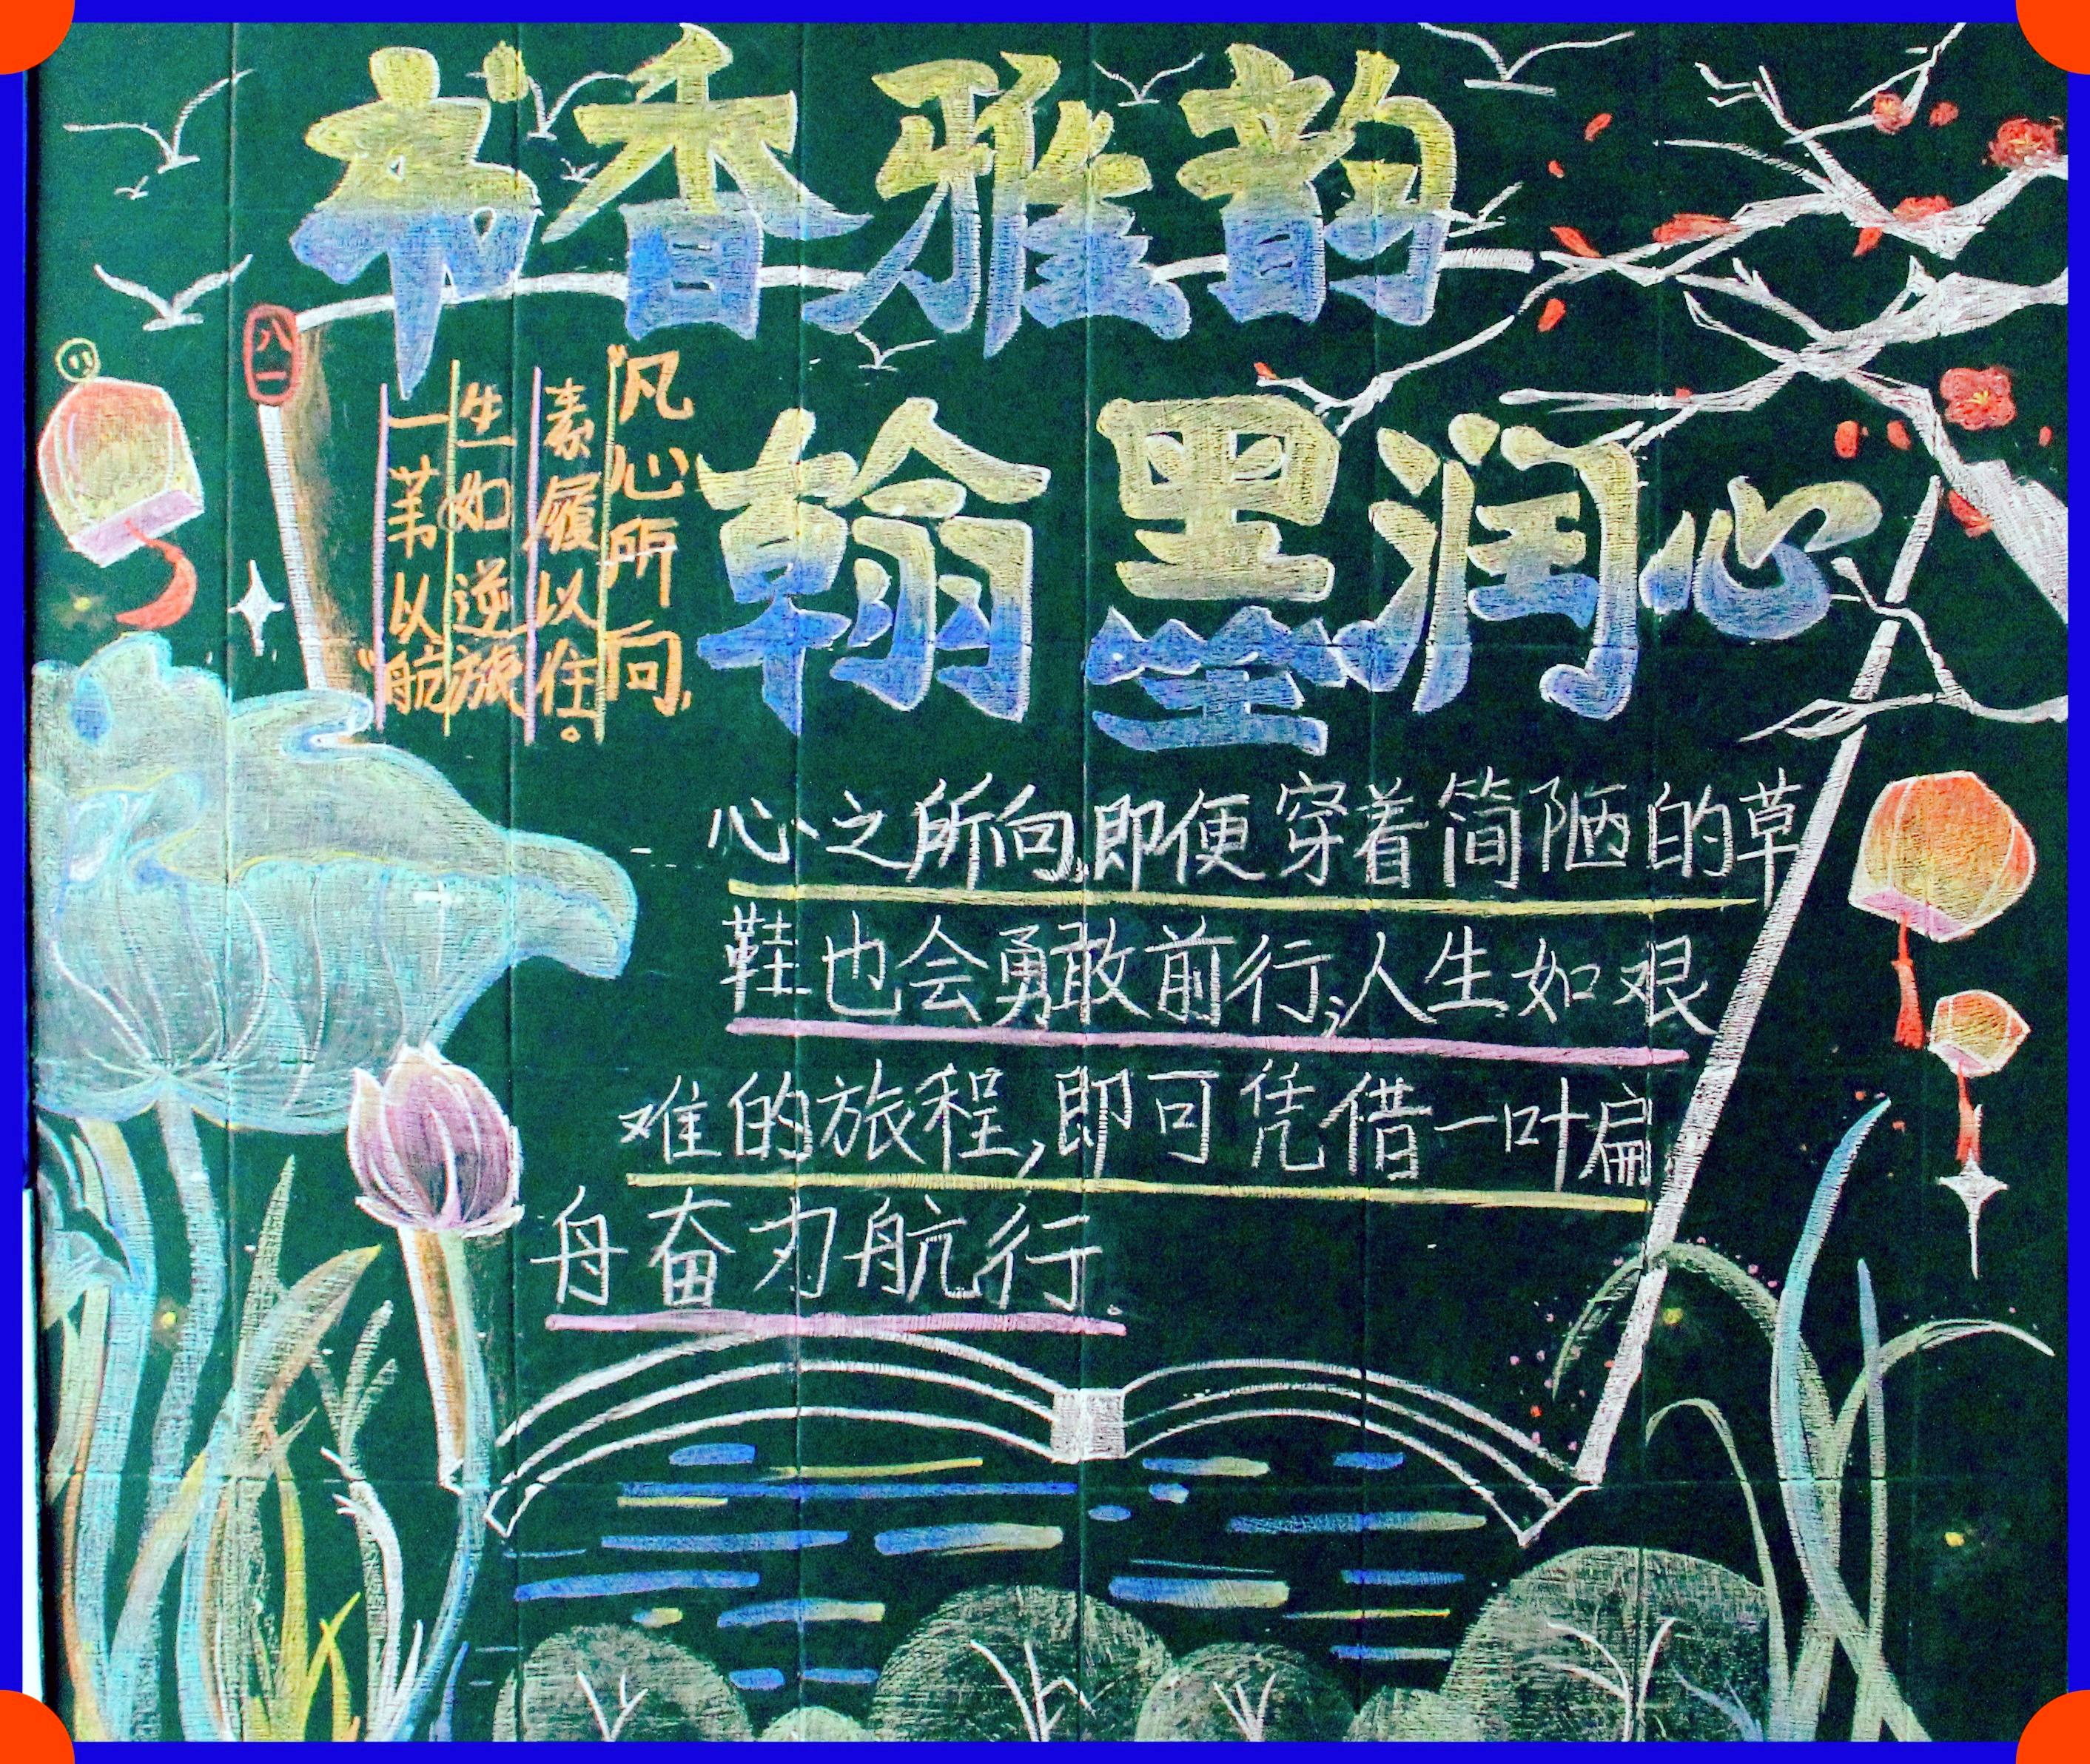 书香雅韵
翰墨润心
八一
"凡心所向,
素履以往。
生如逆旅
一苇以航"
心之所向,即便穿着简陋的草
鞋也会勇敢前行;人生如艰
难的旅程,即可凭借一叶扁
舟奋力航行.